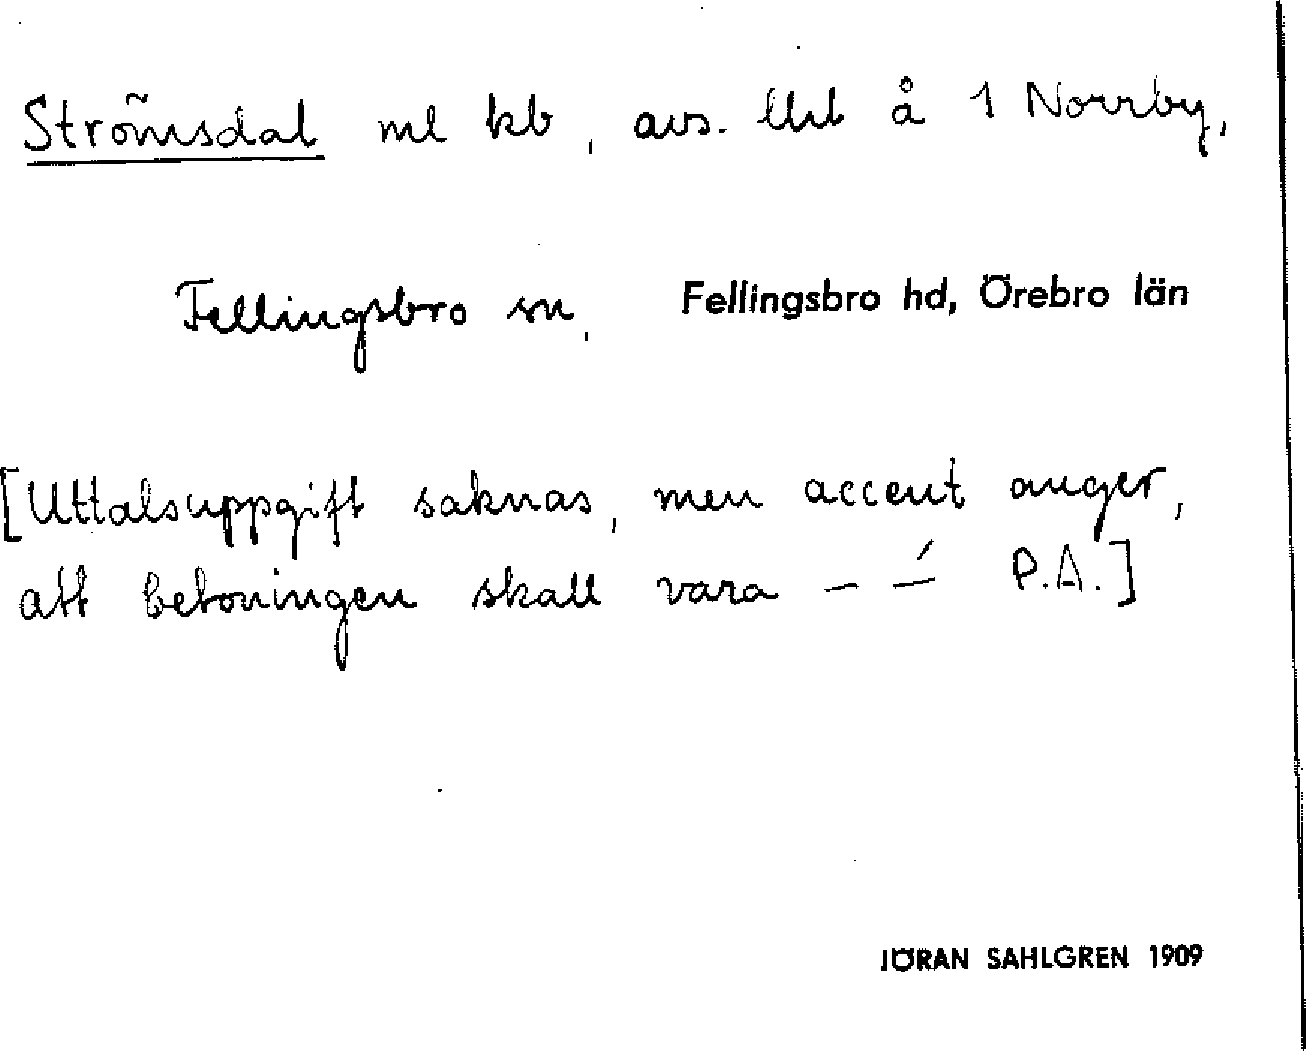 Strömsdal ml kb, avs. lht å 1 Norrby,
Fellingsbro sn, Fellingsbro hd, Örebro län
[Uttalsuppgift saknas, men accent anger,
att betoningen skall vara – –́ P.A.]
JÖRAN SAHLGREN 1909